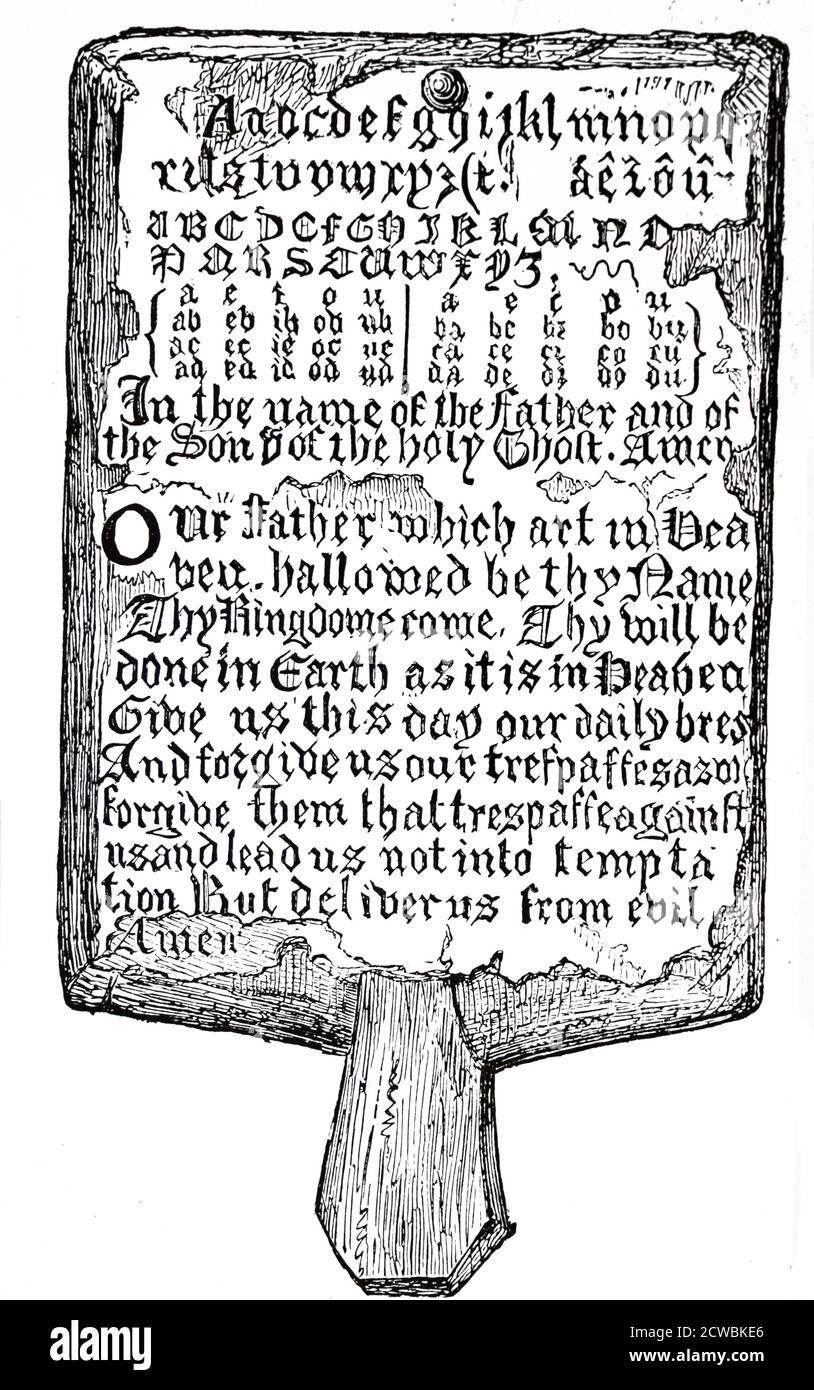 Aabcdefghijklmnopq
rſstuvwxyz&. áêîôû
ABCDEFGHIKLMNO
PQRSTUWXYZ.
a e i o u a e i o u
ab eb ib ob ub ba be bi bo bu
ac ec ic oc uc ca ce ci co cu
ad ed id od ud da de di do du
In the name of the Father and of
the Son & of the holy Ghost. Amen
Our Father which art in Hea
ven. hallowed be thy Name
Thy Kingdome come, Thy will be
done in Earth as it is in Heaven
Give us this day our daily bre
And forgive us our treſpaſſes as
forgive them that trespaſſe againſt
us and lead us not into tempta
tion But deliver us from evil
Amen
alamy
Image ID: 2CWBKE6
www.alamy.com